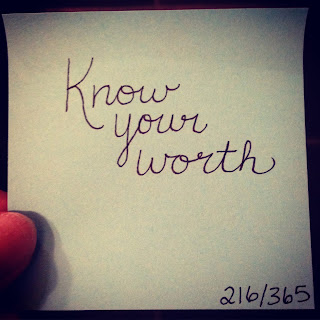 Know
your
worth
216/365